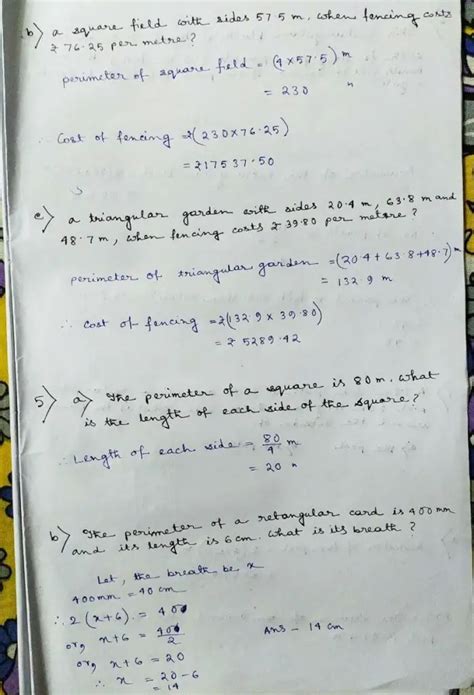 b) a square field with sides 57.5 m, when fencing costs
₹ 76.25 per metre?
perimeter of square field = (4×57.5) m
= 230 "
Cost of fencing = ₹(230×76.25)
= ₹17537.50
c) a triangular garden with sides 20.4 m, 63.8 m and
48.7 m, when fencing costs ₹ 39.80 per metere?
perimeter of triangular garden = (20.4+63.8+48.7) m
= 132.9 m
∴ cost of fencing = ₹(132.9 × 39.80)
= ₹ 5289.42
5) a) The perimeter of a square is 80 m. What
is the length of each side of the square?
∴ Length of each side = 80/4 m
= 20 "
b) The perimeter of a retangular card is 400 mm
and its length is 6 cm. What is its breath?
Let, the breath be x
400 mm = 40 cm
∴ 2 (x+6) = 400
or, x+6 = 400/2
or, x+6 = 20
∴ x = 20-6
= 14
Ans – 14 cm